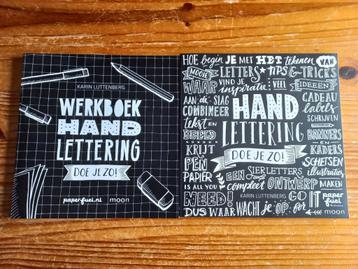 KARIN LUTTENBERG
WERKBOEK
HAND
LETTERING
DOE JE ZO!
paperfuel.nl moon
HOE BEGIN JE MET HET tekenen VAN
MOOIE LETTERS TIPS & TRICKS
WAAR VIND je inspiratie VEEL IDEEËEN
AAN de SLAG
COMBINEER
tekst en
BEELD
HAND
LETTERING
DOE JE ZO!
CADEAU
labels
SCHRIJVEN
BANNERS
EN KADERS
KRIJT
PEN
PAPIER
IS ALL YOU
NEED!
SIERLETTERS
compleet ONTWERP
SCHETSEN
illustraties
MAKEN
KARIN LUTTENBERG
GO IT
paperfuel
DUS WAAR WACHT je OP, for
moon